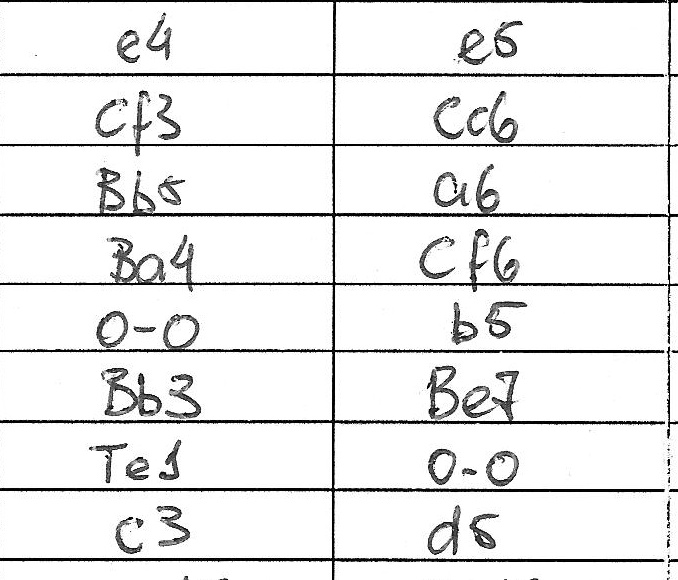 e4 e5
Cf3 Cc6
Bb5 a6
Ba4 Cf6
0-0 b5
Bb3 Be7
Te1 0-0
c3 d5